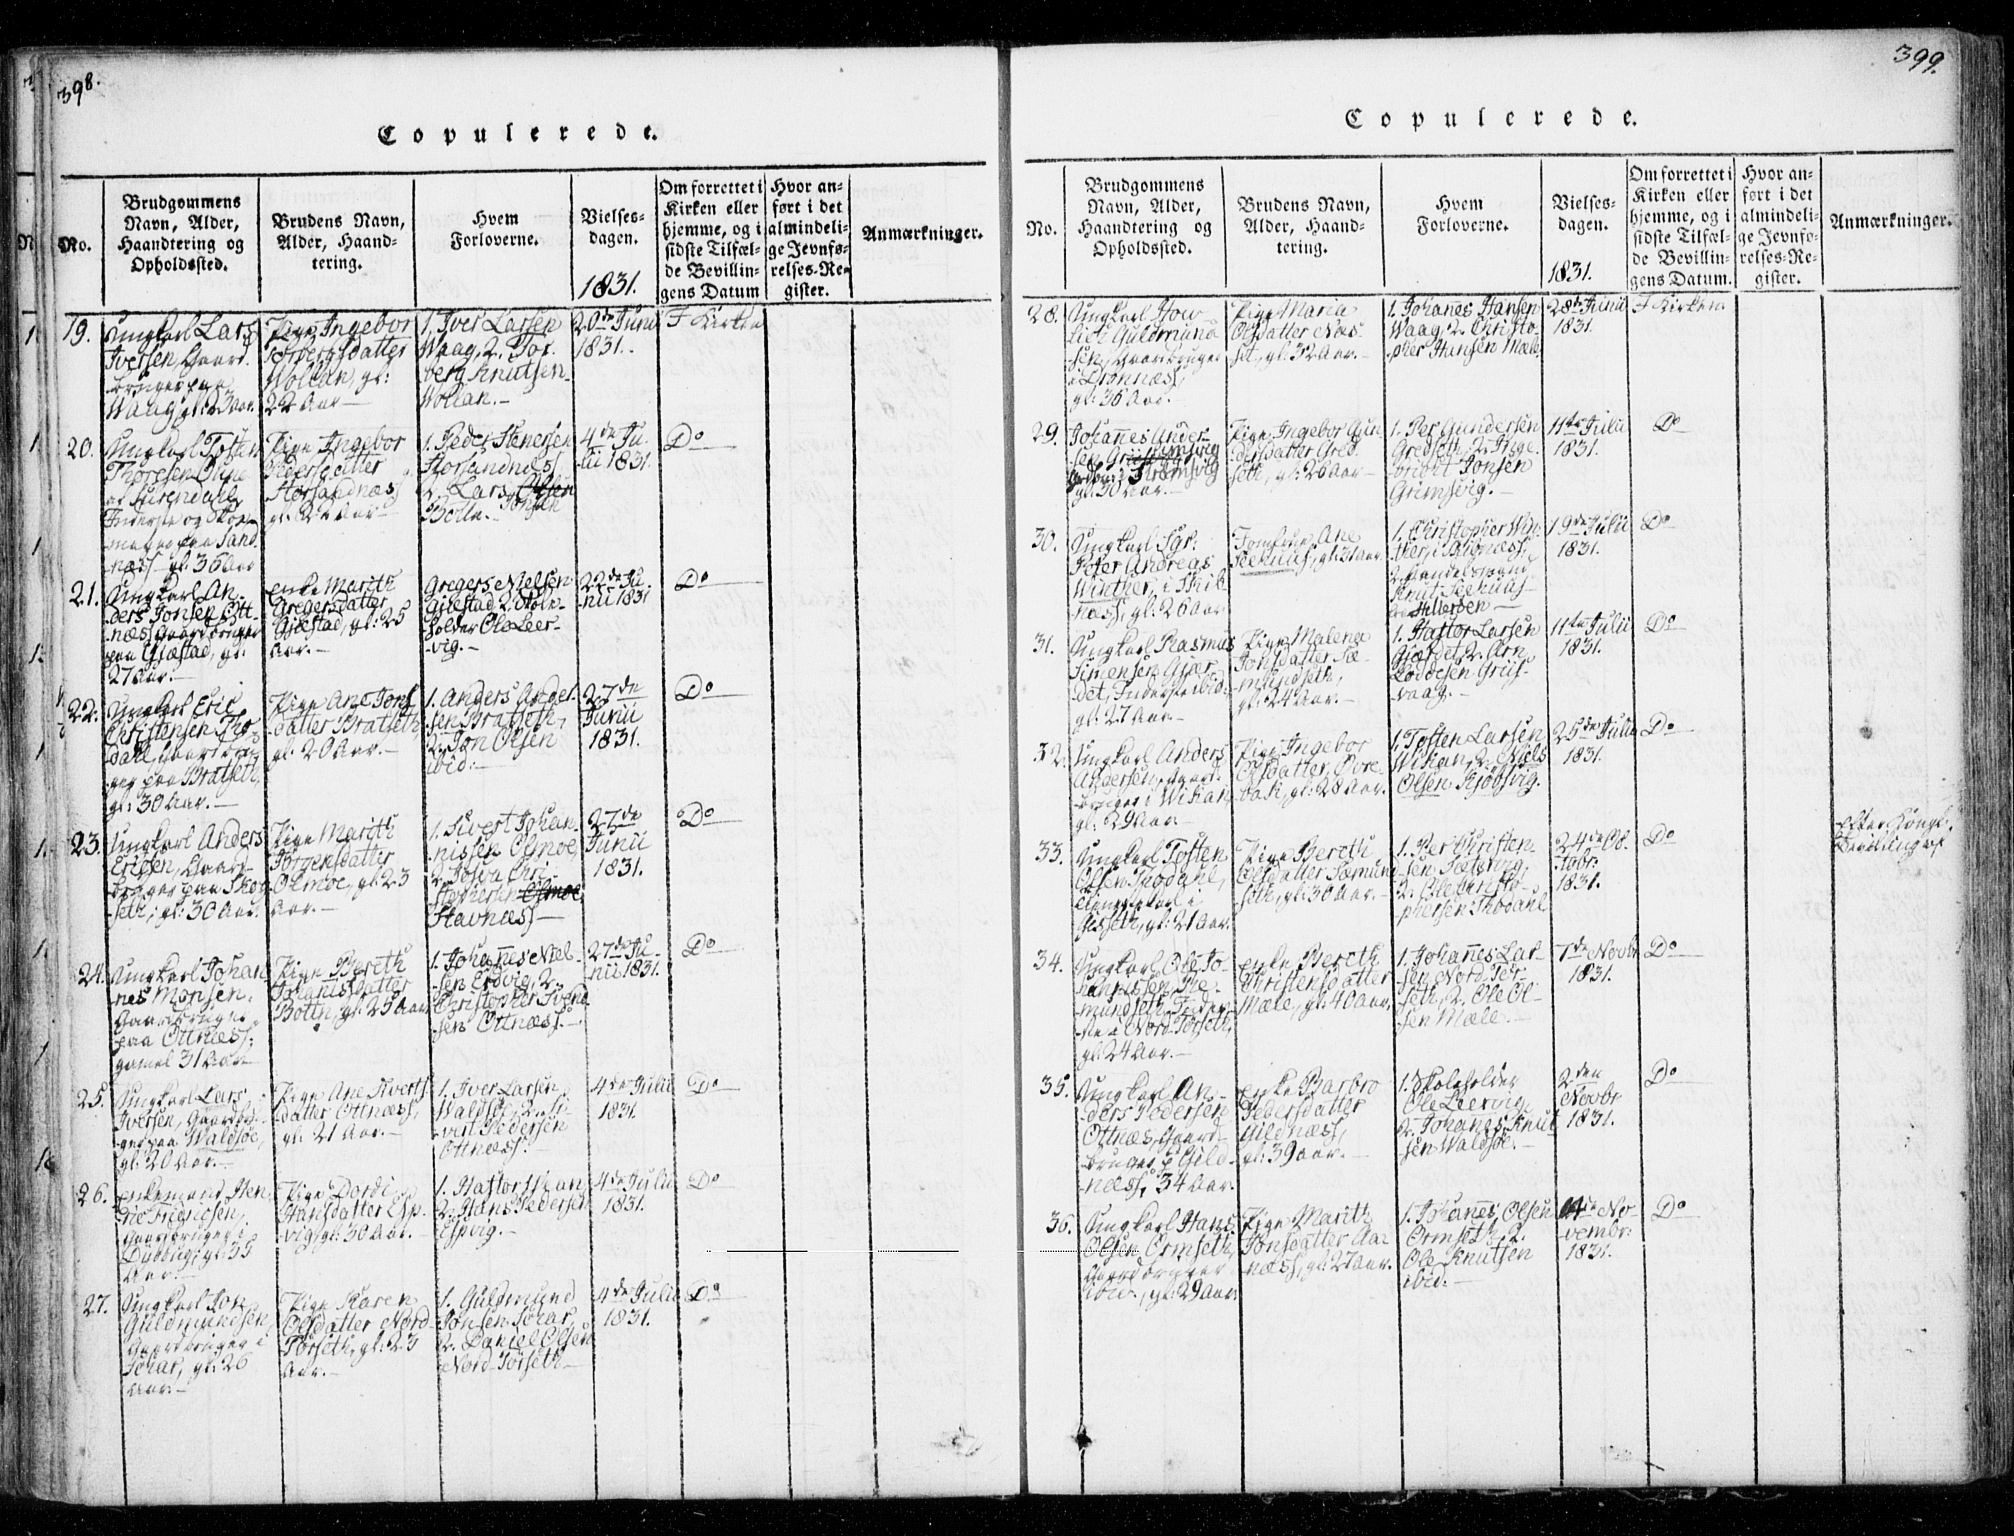 398.
Copulerede.
No.
Brudgommens
Navn, Alder,
Haandtering og
Opholdssted.
Brudens Navn,
Alder, Haand-
tering.
Hvem
Forloverne.
Vielses-
dagen.
1831.
Om forrettet i
Kirken eller
hjemme, og i
sidste Tilfæl-
de Bevillin-
gens Datum
Hvor an-
ført i det
almindeli-
ge Jevnfø-
relses-Re-
gister.
Anmærkninger.
19.
Ungkarl Lars
Iversen, Gaard-
bruger paa
Waag, gl: 23 Aar.
Pige Ingebor
Torbergsdatter
Wollan, gl:
22 Aar
1. Iver Larsen
Waag, 2. Tor-
berg Knutsen
Wollan.
20de Junii
1831.
I Kirken
20.
Ungkarl Tosten
Thoresen
Inderste og Skoe-
mager paa Sand-
næss gl. 36 Aar
Pige Ingebor
Pedersdatter
Horsandnæs
gl. 22 Aar
1. Peder Stenersen
Horsandness
2. Lars Olsen
Botln. Jonsen
4de Ju-
lii 1831.
Do
21.
Ungkarl An-
ders Jonsen Ott-
næss Gaardbruger
paa Giæstad, gl:
27 Aar.
enke Marith
Gregersdatter
Giæstad, gl: 25
Aar.
Gregers Nielsen
Giæstad 2. Skole-
holder Ole Leer-
vig.
22de Ju-
nii 1831
Do
22.
Ungkarl Eric
Christensen Tho-
dahl, Gaardbru-
ger paa Bratseth,
gl: 30 Aar.
Pige Ane Jons-
datter Bratseth
gl: 20 Aar.
1. Anders Ander-
sen Bratseth,
2. Jon Olsen
ibid:
27de
Junii
1831.
Do
23.
Ungkarl Anders
Ericsen, Gaard-
bruger paa Skog-
seth, gl: 30 Aar.
Pige Marith
Jörgensdatter
Olmoe, gl: 23
Aar.
1. Sivert Johan-
nissen Olmoe,
2. Chri-
stophersen Olmoe
Stavnæss
27de
Junii
1831.
Do
24.
Ungkarl Johan-
nes Monsen,
Gaardbruger
paa Ottnæss,
gamel 31 Aar
Pige Bereth
Johanisdatter
Botln, gl: 25 Aar
1. Johannes Niel-
sen Erdvig, 2.
Christopher Svend-
sen Ottnæss.
27de Ju-
nii 1831.
Do
25.
Ungkarl Lars
Iversen, Gaardbru-
ger paa Waldsöe,
gl: 20 Aar.
Pige Ane Siverts-
datter Ottnæss,
gl: 21 Aar.
1. Iver Larsen
Waldsöe, 2. Si-
vert Pedersen
Ottnæss.
4de Julii
1831.
Do
26.
Enkemand Hen-
ric
Gaardbruger i
gl: 35
Aar.
Pige Dordi
Hansdatter Esp-
vig, gl: 30 Aar.
1. Hastor
2. Hans Pedersen
Espvig.
4de Julii
1831.
Do
27.
Ungkarl Jon
Guldmundsen,
Gaardbruger i
gl: 26
Aar.
Pige Karen
Olsdatter Nord-
Torseth, gl: 23
Aar.
1. Guldmund
Jonsen
2. Daniel Olsen
Nord-Torseth
4de Julii
1831.
Do
399.
Copulerede.
No.
Brudgommens
Navn, Alder,
Haandtering og
Opholdssted.
Brudens Navn,
Alder, Haand-
tering.
Hvem
Forloverne.
Vielses-
dagen.
1831.
Om forrettet i
Kirken eller
hjemme, og i
sidste Tilfæl-
de Bevillin-
gens Datum.
Hvor an-
ført i det
almindeli-
ge Jevnfø-
relses-Re-
gister.
Anmærkninger.
28.
Ungkarl
Guldmund-
sen, Gaardbruger
i Drönnæss,
gl: 36 Aar.
Pige Maria
Olsdatter Næs-
set, gl: 32 Aar.
1. Johanes Hansen
Waag, 2. Christo-
pher Hansen Mæle
28de Junii
1831.
I Kirken
29.
Johannes Ander-
sen
i Strömsvig
gl: 30 Aar.
Pige Ingebor Gun-
dersdatter Gred-
seth, gl: 26 Aar
1. Per Gundersen
Gredseth, 2. Inge-
bricht Jonsen
Grimsvig.
11te Julii
1831.
Do
30.
Ungkarl Sgr:
Peter Andreas
Winther, i Thib-
næss, gl: 26 Aar
Jomfrue Ane
Seehuus, gl: 31 Aar.
1. Christopher Win-
ther,
2. Handelsmand
Knut Seehuus
Hillersen
19de Julii
1831.
Do
31.
Ungkarl Rasmus
Simensen Giær-
det, Inderste ibid:
gl: 27 Aar
Pige Malena
Jonsdatter Sæ-
mundseth,
gl: 24 Aar.
1. Hastor Larsen
Giærdet, 2. Arn
Grüs-
vaag.
11te Julii
1831.
Do
32.
Ungkarl Anders
Andersen, Gaard-
bruger i Wikan
gl: 29 Aar
Pige Ingebor
Olsdatter Övre-
bak, gl: 28 Aar.
1. Tosten Larsen
Wikan, 2. Niels
Olsen Kjöbsvig.
25de Julii
1831.
Do
33.
Ungkarl Tosten
Olsen Thodahl,
i
Gisseth, gl: 21 Aar.
Pige Bereth
Olsdatter Sæmund-
seth, gl: 30 Aar.
1. Per Christen-
sen Sætervig,
2. Ole Christo-
phersen Thodahl
24de Oc-
tobr:
1831.
Do
Efter Kongl:
Bevilling af
34.
Ungkarl Ole Jo-
hannissen Sæ-
mundseth, Inder-
ste i Nord-Torseth,
gl: 24 Aar.
enke Bereth
Christensdatter
Mæle, gl: 40 Aar.
1. Johannes Lar-
sen Nord-Tor-
seth, 2. Ole Ol-
sen Mæle.
7de Novbr
1831.
Do
35.
Ungkarl An-
ders Pedersen
Ottnæs, Gaard-
bruger p: Gild-
næss, 34 Aar.
enke Barbro
Pedersdatter
Gildnæss,
gl: 39 Aar.
1. Skoleholder
Ole Leervig
2. Johanes Knut-
sen Waldsöe.
2den
Novbr
1831.
Do
36.
Ungkarl Hans
Olsen Ormseth,
Gaardbruger
ibid., gl: 29 Aar
Pige Marith
Jonsdatter Aar-
næss, gl: 27 Aar.
1. Johanes Olsen
Ormseth, 2.
Ole Knutsen
ibid:
14de No-
vembr:
1831.
Do